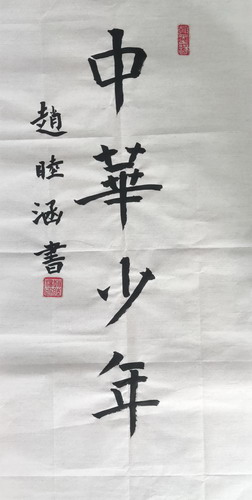 中華少年
趙睦涵書